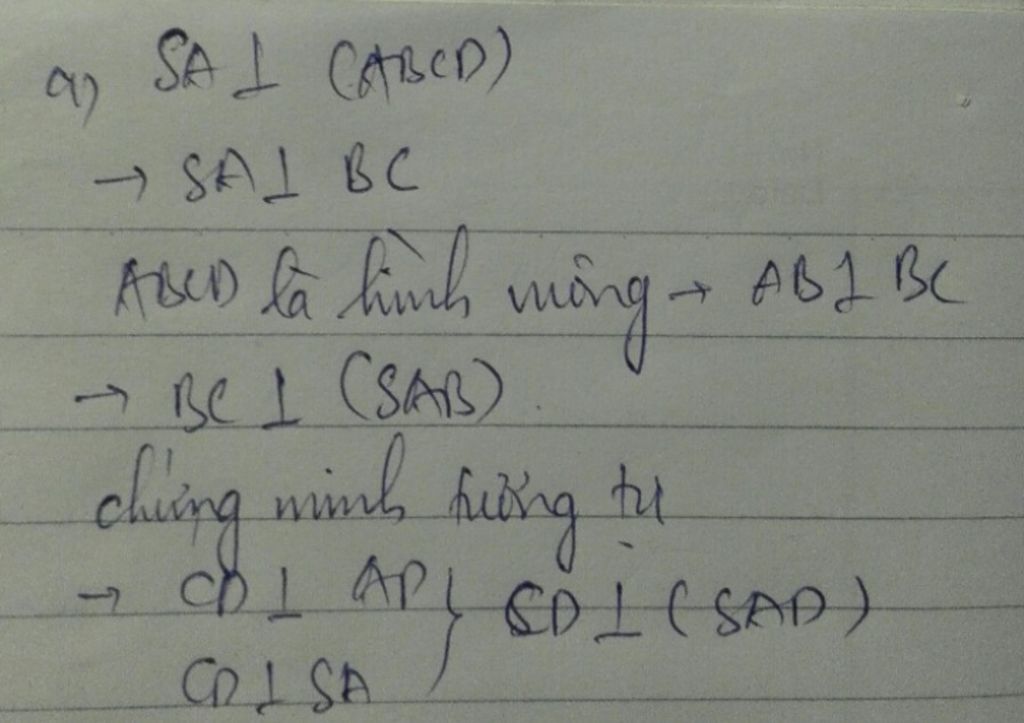 a) SA ⊥ (ABCD)
→ SA ⊥ BC
ABCD là hình vuông → AB ⊥ BC
→ BC ⊥ (SAB).
chứng minh tương tự
→ CD ⊥ AD } CD ⊥ (SAD)
CD ⊥ SA